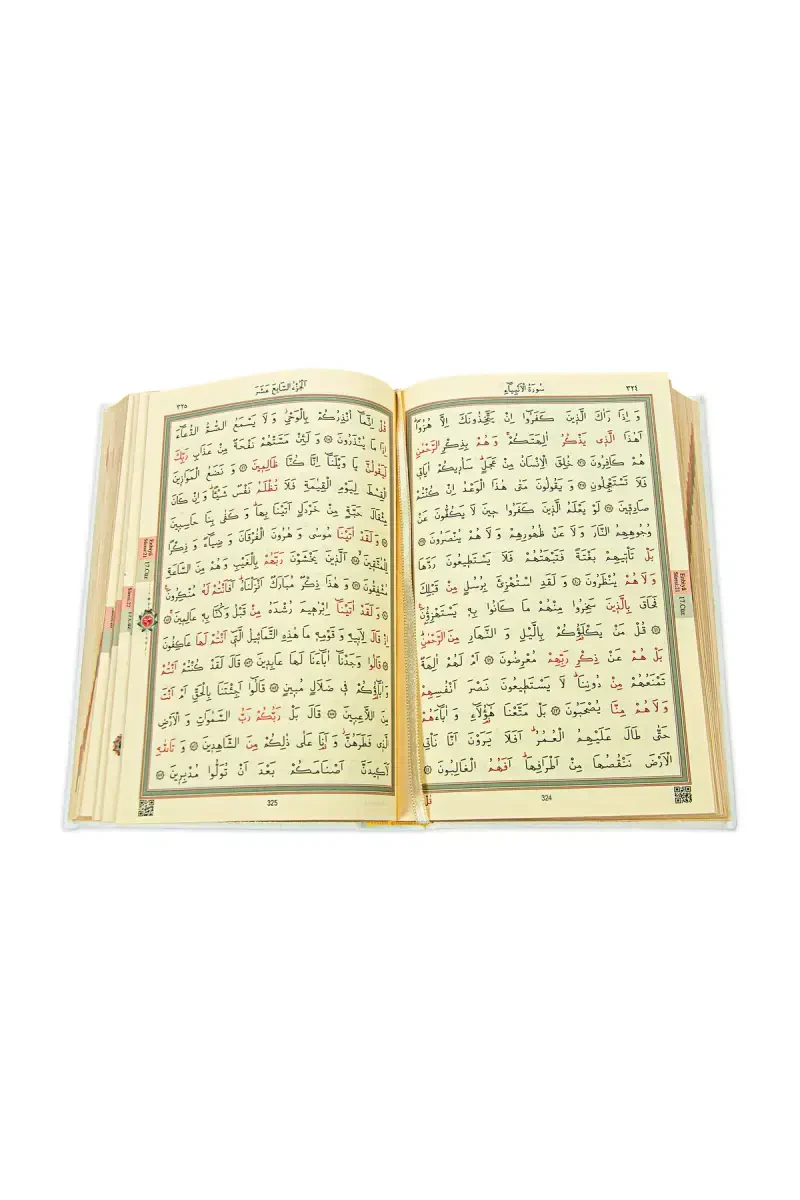 سورة الأنبياء ٣٢٤
وَ اِذَا رَاٰكَ الَّذٖينَ كَفَرُٓوا اِنْ يَتَّخِذُونَكَ اِلَّا هُزُوًاؕ
اَهٰذَا الَّذٖى يَذْكُرُ اٰلِهَتَكُمْۚ وَ هُمْ بِذِكْرِ الرَّحْمٰنِ
هُمْ كَافِرُونَ ۞ خُلِقَ الْاِنْسَانُ مِنْ عَجَلٍؕ سَاُرٖيكُمْ اٰيَاتٖى
فَلَا تَسْتَعْجِلُونِ ۞ وَ يَقُولُونَ مَتٰى هٰذَا الْوَعْدُ اِنْ كُنْتُمْ
صَادِقٖينَ ۞ لَوْ يَعْلَمُ الَّذٖينَ كَفَرُوا حٖينَ لَا يَكُفُّونَ عَنْ
وُجُوهِهِمُ النَّارَ وَ لَا عَنْ ظُهُورِهِمْ وَ لَا هُمْ يُنْصَرُونَ ۞
بَلْ تَاْتٖيهِمْ بَغْتَةً فَتَبْهَتُهُمْ فَلَا يَسْتَطٖيعُونَ رَدَّهَا
وَ لَا هُمْ يُنْظَرُونَ ۞ وَ لَقَدِ اسْتُهْزِئَ بِرُسُلٍ مِنْ قَبْلِكَ
فَحَاقَ بِالَّذٖينَ سَخِرُوا مِنْهُمْ مَا كَانُوا بِهٖ يَسْتَهْزِؤُنَ
۞ قُلْ مَنْ يَكْلَؤُكُمْ بِالَّيْلِ وَ النَّهَارِ مِنَ الرَّحْمٰنِؕ
بَلْ هُمْ عَنْ ذِكْرِ رَبِّهِمْ مُعْرِضُونَ ۞ اَمْ لَهُمْ اٰلِهَةٌ
تَمْنَعُهُمْ مِنْ دُونِنَاؕ لَا يَسْتَطٖيعُونَ نَصْرَ اَنْفُسِهِمْ
وَ لَا هُمْ مِنَّا يُصْحَبُونَ ۞ بَلْ مَتَّعْنَا هٰٓؤُلَٓاءِ وَ اٰبَٓاءَهُمْ
حَتّٰى طَالَ عَلَيْهِمُ الْعُمُرُؕ اَفَلَا يَرَوْنَ اَنَّا نَاْتِى
الْاَرْضَ نَنْقُصُهَا مِنْ اَطْرَافِهَاؕ اَفَهُمُ الْغَالِبُونَ ۞
قُلْ
324
Enbiyâ Sûresi:21 17.Cüz
الجزء السابع عشر ٣٢٥
قُلْ اِنَّمَٓا اُنْذِرُكُمْ بِالْوَحْىِؗ وَ لَا يَسْمَعُ الصُّمُّ الدُّعَٓاءَ
اِذَا مَا يُنْذَرُونَ ۞ وَ لَئِنْ مَسَّتْهُمْ نَفْحَةٌ مِنْ عَذَابِ رَبِّكَ
لَيَقُولُنَّ يَا وَيْلَنَٓا اِنَّا كُنَّا ظَالِمٖينَ ۞ وَ نَضَعُ الْمَوَازٖينَ
الْقِسْطَ لِيَوْمِ الْقِيٰمَةِ فَلَا تُظْلَمُ نَفْسٌ شَيْـًٔاؕ وَ اِنْ كَانَ
مِثْقَالَ حَبَّةٍ مِنْ خَرْدَلٍ اَتَيْنَا بِهَاؕ وَ كَفٰى بِنَا حَاسِبٖينَ
۞ وَ لَقَدْ اٰتَيْنَا مُوسٰى وَ هٰرُونَ الْفُرْقَانَ وَ ضِيَٓاءً وَ ذِكْرًا
لِلْمُتَّقٖينَۙ ۞ اَلَّذٖينَ يَخْشَوْنَ رَبَّهُمْ بِالْغَيْبِ وَ هُمْ مِنَ السَّاعَةِ
مُشْفِقُونَ ۞ وَ هٰذَا ذِكْرٌ مُبَارَكٌ اَنْزَلْنَاهُؕ اَفَاَنْتُمْ لَهُ مُنْكِرُونَ
۞ وَ لَقَدْ اٰتَيْنَٓا اِبْرٰهٖيمَ رُشْدَهُ مِنْ قَبْلُ وَ كُنَّا بِهٖ عَالِمٖينَۚ ۞
اِذْ قَالَ لِاَبٖيهِ وَ قَوْمِهٖ مَا هٰذِهِ التَّمَاثٖيلُ الَّتٖٓى اَنْتُمْ لَهَا عَاكِفُونَ
۞ قَالُوا وَجَدْنَٓا اٰبَٓاءَنَا لَهَا عَابِدٖينَ ۞ قَالَ لَقَدْ كُنْتُمْ اَنْتُمْ
وَ اٰبَٓاؤُكُمْ فٖى ضَلَالٍ مُبٖينٍ ۞ قَالُٓوا اَجِئْتَنَا بِالْحَقِّ اَمْ اَنْتَ
مِنَ اللَّاعِبٖينَ ۞ قَالَ بَلْ رَبُّكُمْ رَبُّ السَّمٰوَاتِ وَ الْاَرْضِ
الَّذٖى فَطَرَهُنَّؗ وَ اَنَا عَلٰى ذٰلِكُمْ مِنَ الشَّاهِدٖينَ ۞ وَ تَاللّٰهِ
لَاَكٖيدَنَّ اَصْنَامَكُمْ بَعْدَ اَنْ تُوَلُّوا مُدْبِرٖينَ ۞
325
Enbiyâ Sûresi:21 17.Cüz